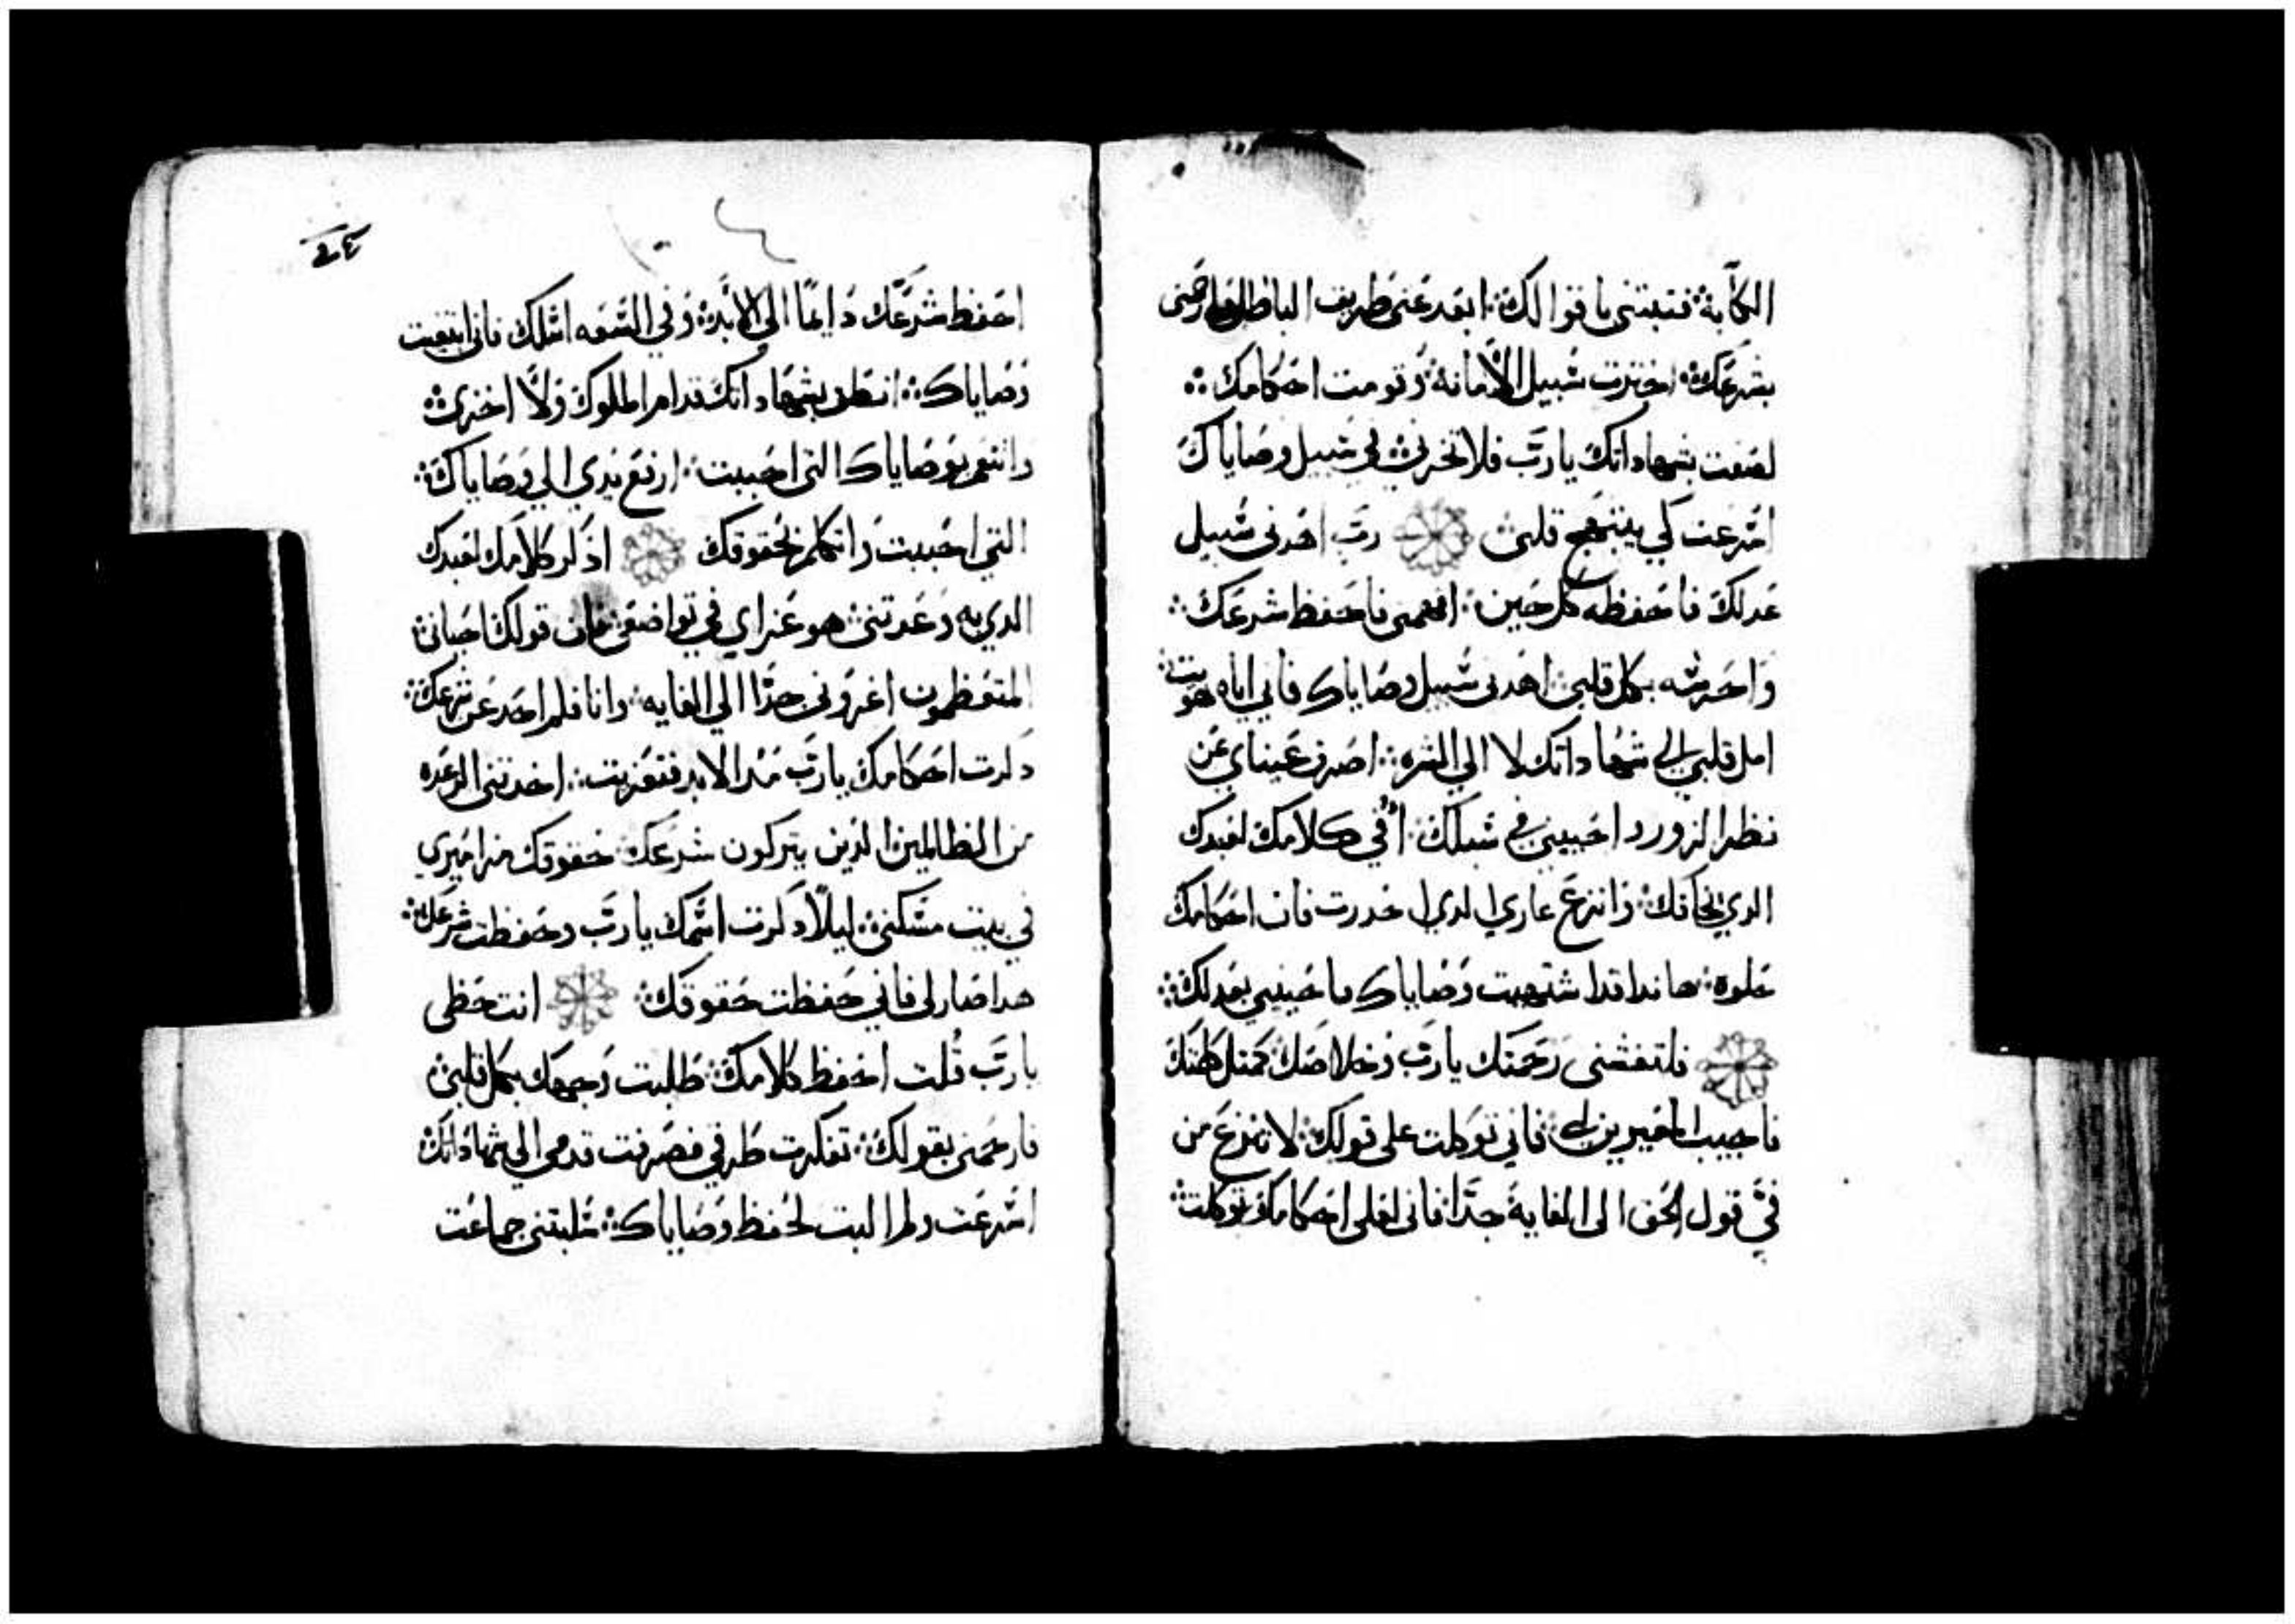 الكآبة فتبتنى باقوالك ابعد عني طريق الباطل وارحمنى
بشرعك اخترت سبيل الامانة وتومت احكامك
لصقت بشهاداتك يا رب فلا تخزني في سبيل وصاياك
اسرعت كي يبتهج قلبي رب اهدني سبيل
عدلك فاحفظه كل حين افهمني فاحفظ شرعك
واحرسه بكل قلبي اهدني سبيل وصاياك فاني اياه هويت
امل قلبي الى شهاداتك لا الي الشره اصرف عيناي عن
نظر الزور واحييني في سبلك أفي كلامك لعبدك
الدي يخافك وانزع عاري الدي حدرت فان احكامك
حلوة هاندا قد اشتهيت وصاياك فاحييني بعدلك
فلتغشني رحمتك يا رب وخلاصك كمثل كلمتك
فاجيب المعيرين لي فاني توكلت على قولك لا تنزع من
في قول الحق الى الغاية جدا فاني لعلي احكامك توكلت
٢٤
احفظ شرعك دايما الي الابد وفي السعه اسلك فاني ابتغيت
وصاياك انطق بشهاداتك قدام الملوك ولا اخزى
واتنعم بوصاياك التي احببت ارفع يدي الي وصاياك
التي احببت واتكلم بحقوقك اذكر كلامك لعبدك
الدي به وعدتني هو عزاي في تواضعي فان قولك احياني
المتعظمون اغروني جدا الي الغايه وانا فلم احد عن شرعك
دكرت احكامك يا رب مند الابد فتعزيت اخدتني الرعده
من الظالمين الدين يتركون شرعك حقوقك مزاميري
في بيت مسكني ليلا دكرت اسمك يا رب وحفظت شرعك
هدا صار لي فاني حفظت حقوقك انت حظي
يا رب قلت احفظ كلامك طلبت وجهك بكل قلبي
فارحمني بقولك تفكرت طرفي فصرفت قدمي الي شهاداتك
اسرعت ولم البت لحفظ وصاياك سلبتني جماعت